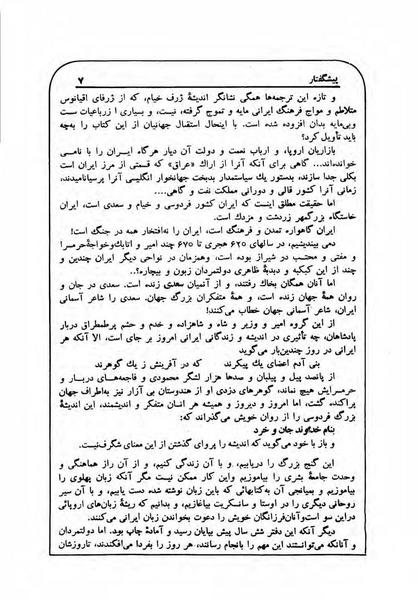 پیشگفتار ۷
و تازه این ترجمه‌ها همگی نشانگر اندیشهٔ ژرف خیام، که از ژرفای اقیانوس
متلاطم و مواج فرهنگ ایرانی مایه و تموج گرفته، نیست، و بسیاری از رباعیات سست
وبی‌مایه بدان افزوده شده است. با اینحال استقبال جهانیان از این کتاب را به‌چه
باید تأویل کرد؟
بازاریان اروپا، و ارباب نعمت و دولت آن دیار هرگاه ایران را با نامی
خوانده‌اند... گاهی برای آنکه آنرا از اراك «عراق» که قسمتی از مرز ایران است
بکلی جدا سازند، بدستور یك سیاستمدار بدبخت جهانخوار انگلیسی آنرا پرسیانامیدند،
زمانی آنرا کشور قالی و دورانی مملکت نفت و گاهی....
اما حقیقت مطلق اینست که ایران کشور فردوسی و خیام و سعدی است. ایران
خاستگاه بزرگمهر زردشت و مزدك است.
ایران گاهواره تمدن و فرهنگ است، ایران را نه‌افتخار همه در جنگ است!
دمی بیندیشیم، در سالهای ۶۲۵ هجری تا ۶۷۵ چند امیر و اتابك‌وخواجهٔ‌حرمسرا
و مفتی و محتسب در شیراز بوده است، وهمزمان در نواحی دیگر ایران چندین و
چند از این کبکبه و دبدبهٔ ظاهری دولتمردان زبون و بیچاره؟..
اما آنان همگان بخاك رفتند، و از آنمیان سعدی زنده است. سعدی در جان و
روان همهٔ جهان زنده است، و همهٔ متفکران بزرگ جهان، سعدی را شاعر آسمانی
ایران، شاعر آسمانی جهان خطاب می‌کنند!
از این گروه امیر و وزیر و شاه و شاهزاده و خدم و حشم پرطمطراق دربار
پادشاهان، چه تأثیری در اندیشه و زندگانی ایرانی امروز بر جای است، الا آنکه هر
ایرانی در روز چندین‌بار می‌گوید
بنی آدم اعضای یك پیکرند که در آفرینش ز یك گوهرند
از پانصد پیل و پیلبان و صدها هزار لشگر محمودی و فاجعه‌های دربار و
حرمسرایش هیچ نماند، گوهرهای دزدی او از هندوستان بی آزار نیز به‌اطراف جهان
پراکنده گشت، اما امروز و دیروز و همیشه هر انسان متفکر و اندیشمند، این اندیشهٔ
بزرگ فردوسی را از روان خویش می‌گذراند که:
بنام خداوند جان و خرد
و باز با خود می‌گوید که اندیشه را پروای گذشتن از این معنای شگرف‌نیست.
این گنج بزرگ را دریابیم، و با آن زندگی کنیم، و از آن راز هماهنگی و
وحدت جامعهٔ بشری را بیاموزیم واین کار ممکن نیست مگر آنکه زبان پهلوی را
بیاموزیم و بمیانجی آن به‌کتابهائی که باین زبان نوشته شده دست یابیم، و با آن سیر
روحانی دیگری را در اوستا و سانسکریت بیاغازیم، و بدانیم که ریشهٔ زبان‌های اروپائی
دراین سو است‌وآنان‌فرزانگان خویش را دعوت بخواندن زبان ایرانی می‌کنند.
دیگر آنکه این دفتر شش سال پیش بپایان رسید و آمادهٔ چاپ بود. اما دولتمردان
و آنانکه می‌توانستند این مهم را بانجام رسانند، هر روز را بفردا می‌افکندند، تاروزشان